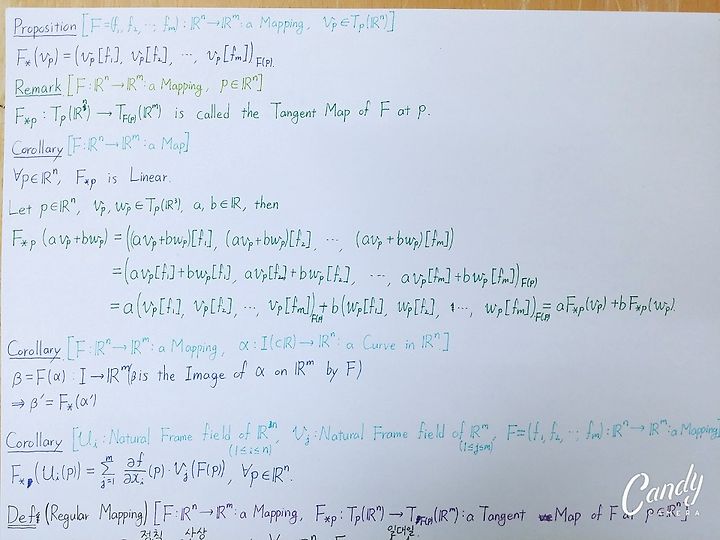 Proposition [F=(f₁, f₂, ⋯, fₘ): ℝⁿ→ℝᵐ: a Mapping, vₚ∈Tₚ(ℝⁿ)]
F*(vₚ)=(vₚ[f₁], vₚ[f₂], ⋯, vₚ[fₘ])F(p).
Remark [F:ℝⁿ→ℝᵐ: a Mapping, p∈ℝⁿ]
F*p : Tₚ(ℝⁿ)→T_F(p)(ℝᵐ) is called the Tangent Map of F at p.
Corollary [F:ℝⁿ→ℝᵐ: a Map]
∀p∈ℝⁿ, F*p is Linear.
Let p∈ℝⁿ, vₚ, wₚ∈Tₚ(ℝ³), a, b∈ℝ, then
F*p(avₚ+bwₚ)=((avₚ+bwₚ)[f₁], (avₚ+bwₚ)[f₂], ⋯, (avₚ+bwₚ)[fₘ])
=(avₚ[f₁]+bwₚ[f₁], avₚ[f₂]+bwₚ[f₂], ⋯, avₚ[fₘ]+bwₚ[fₘ])F(p)
=a(vₚ[f₁], vₚ[f₂], ⋯, vₚ[fₘ])F(p)+b(wₚ[f₁], wₚ[f₂], ⋯, wₚ[fₘ])F(p)=aF*p(vₚ)+bF*p(wₚ).
Corollary [F:ℝⁿ→ℝᵐ: a Mapping, α:I(⊂ℝ)→ℝⁿ: a Curve in ℝⁿ]
β=F(α):I→ℝᵐ(β is the Image of α on ℝᵐ by F)
⇒β′=F*(α′)
Corollary [Uᵢ:Natural Frame field of ℝⁿ (1≤i≤n), Vⱼ:Natural Frame field of ℝᵐ (1≤j≤m), F=(f₁, f₂, ⋯, fₘ):ℝⁿ→ℝᵐ: a Mapping]
F*p(Uᵢ(p))=∑ᵐⱼ₌₁ ∂f/∂xᵢ(p)·Vⱼ(F(p)), ∀p∈ℝⁿ.
Def. (Regular Mapping) [F:ℝⁿ→ℝᵐ: a Mapping, F*p:Tₚ(ℝⁿ)→T_F(p)(ℝᵐ): a Tangent Map of F at p∈ℝⁿ]
정칙 사상 일대일.
Candy
CAMERA